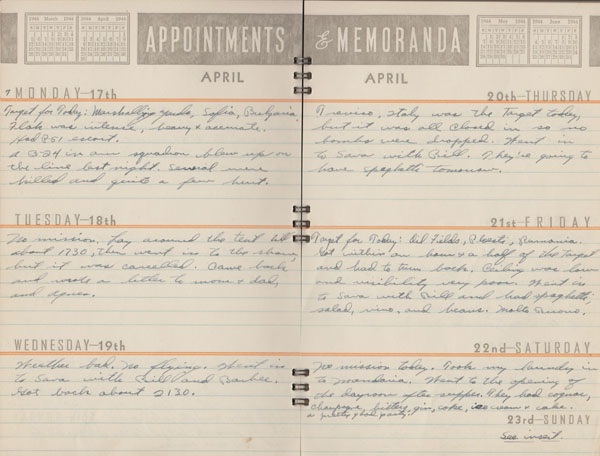 1944 March 1944
1944 April 1944
APPOINTMENTS
& MEMORANDA
1944 May 1944
1944 June 1944
APRIL
MONDAY—17th
Target for Today: Marshalling yards, Sofia, Bulgaria.
Flak was intense, heavy & accurate.
Had P51 escort.
a B24 in our squadron blew up on
the line last night. Several were
killed and quite a few hurt.
TUESDAY—18th
No mission. Lay around the tent till
about 1730, then went in to the show,
but it was cancelled. Came back
and wrote a letter to mom & dad,
and Agnes.
WEDNESDAY—19th
Weather bad. No flying. Went in
to Sava with Bill and
Got back about 2130.
APRIL
20th—THURSDAY
Treviso, Italy was the Target today,
but it was all closed in so no
bombs were dropped. Went in
to Sava with Bill. They're going to
have spaghetti tomorrow.
21st—FRIDAY
Target for Today: Oil Fields, Ploesti, Rumania.
Got within an hour & a half of the Target
and had to turn back. Ceiling was low
and visibility very poor. Went in
to Sava with Bill and had spaghetti,
salad, vino, and beans. Molto Buono.
22nd—SATURDAY
No mission today. Took my laundry in
to Manduria. Went to the opening of
the dayroom after supper. They had cognac,
champagne, bitters, gin, coke, ice cream & cake.
a pretty good party.
23rd—SUNDAY
See insert.